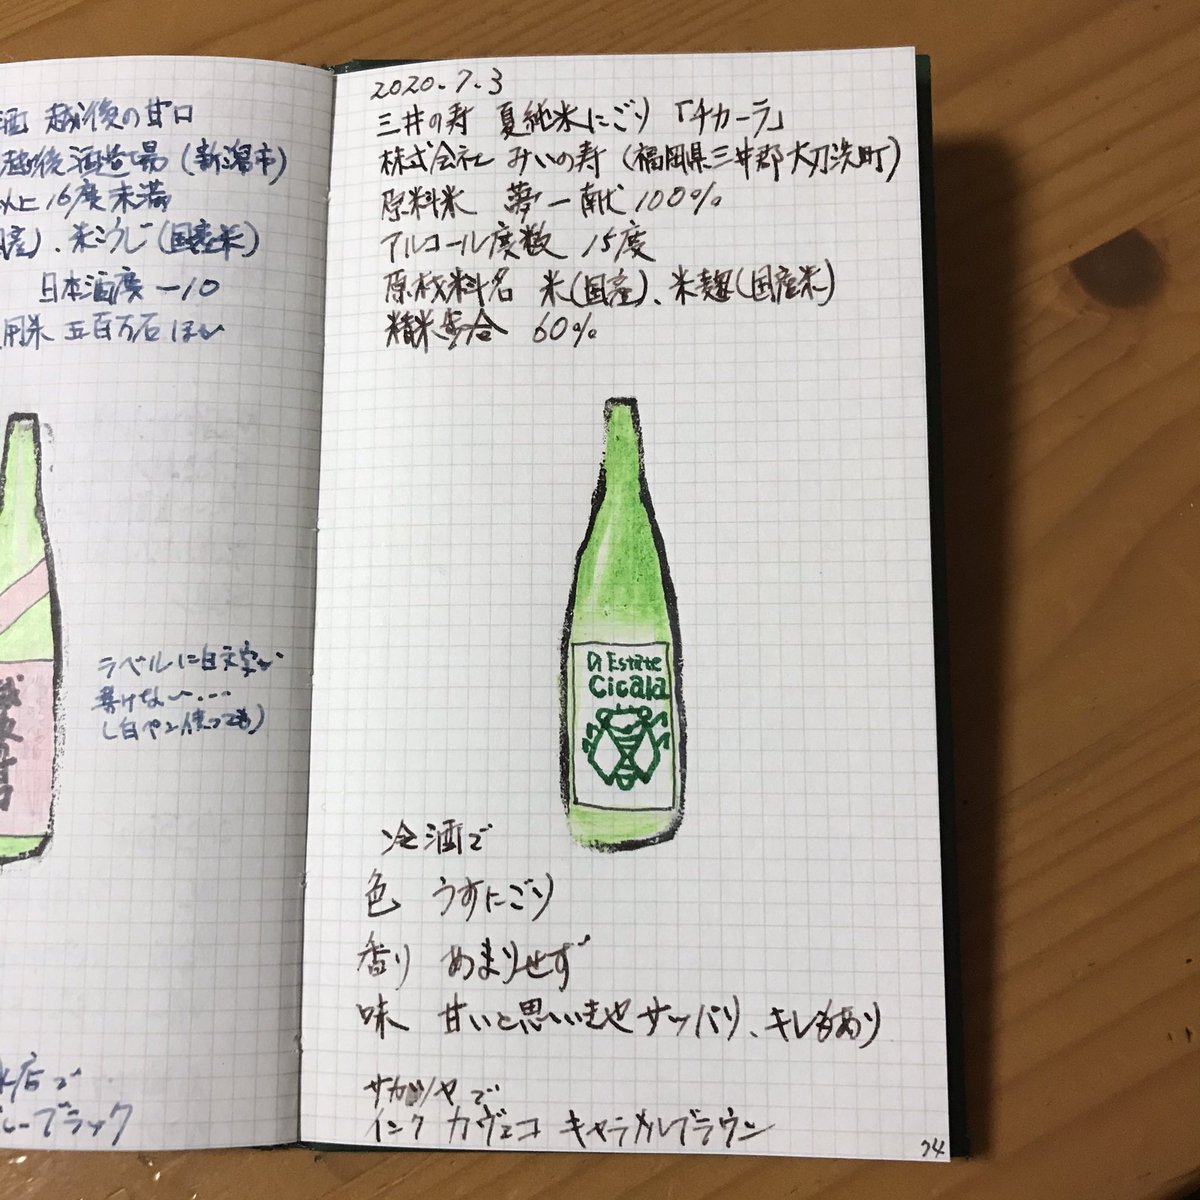 酒 越後の甘口
越後酒造場(新潟市)
以上16度未満
国産)、米こうじ(国産米)
日本酒度 -10
用米 五百万石ほか
ラベルに白文字が
書けない・・・
(白ペン使っても)
店で
ルーブラック
2020.7.3
三井の寿 夏純米にごり「チカーラ」
株式会社 みいの寿(福岡県三井郡大刀洗町)
原料米 夢一献 100%
アルコール度数 15度
原材料名 米(国産)、米麹(国産米)
精米歩合 60%
Di Estate
Cicala
冷酒で
色 うすにごり
香り あまりせず
味 甘いと思いきやサッパリ、キレもあり
サカツヤで
インク カヴェコ キャラメルブラウン
74